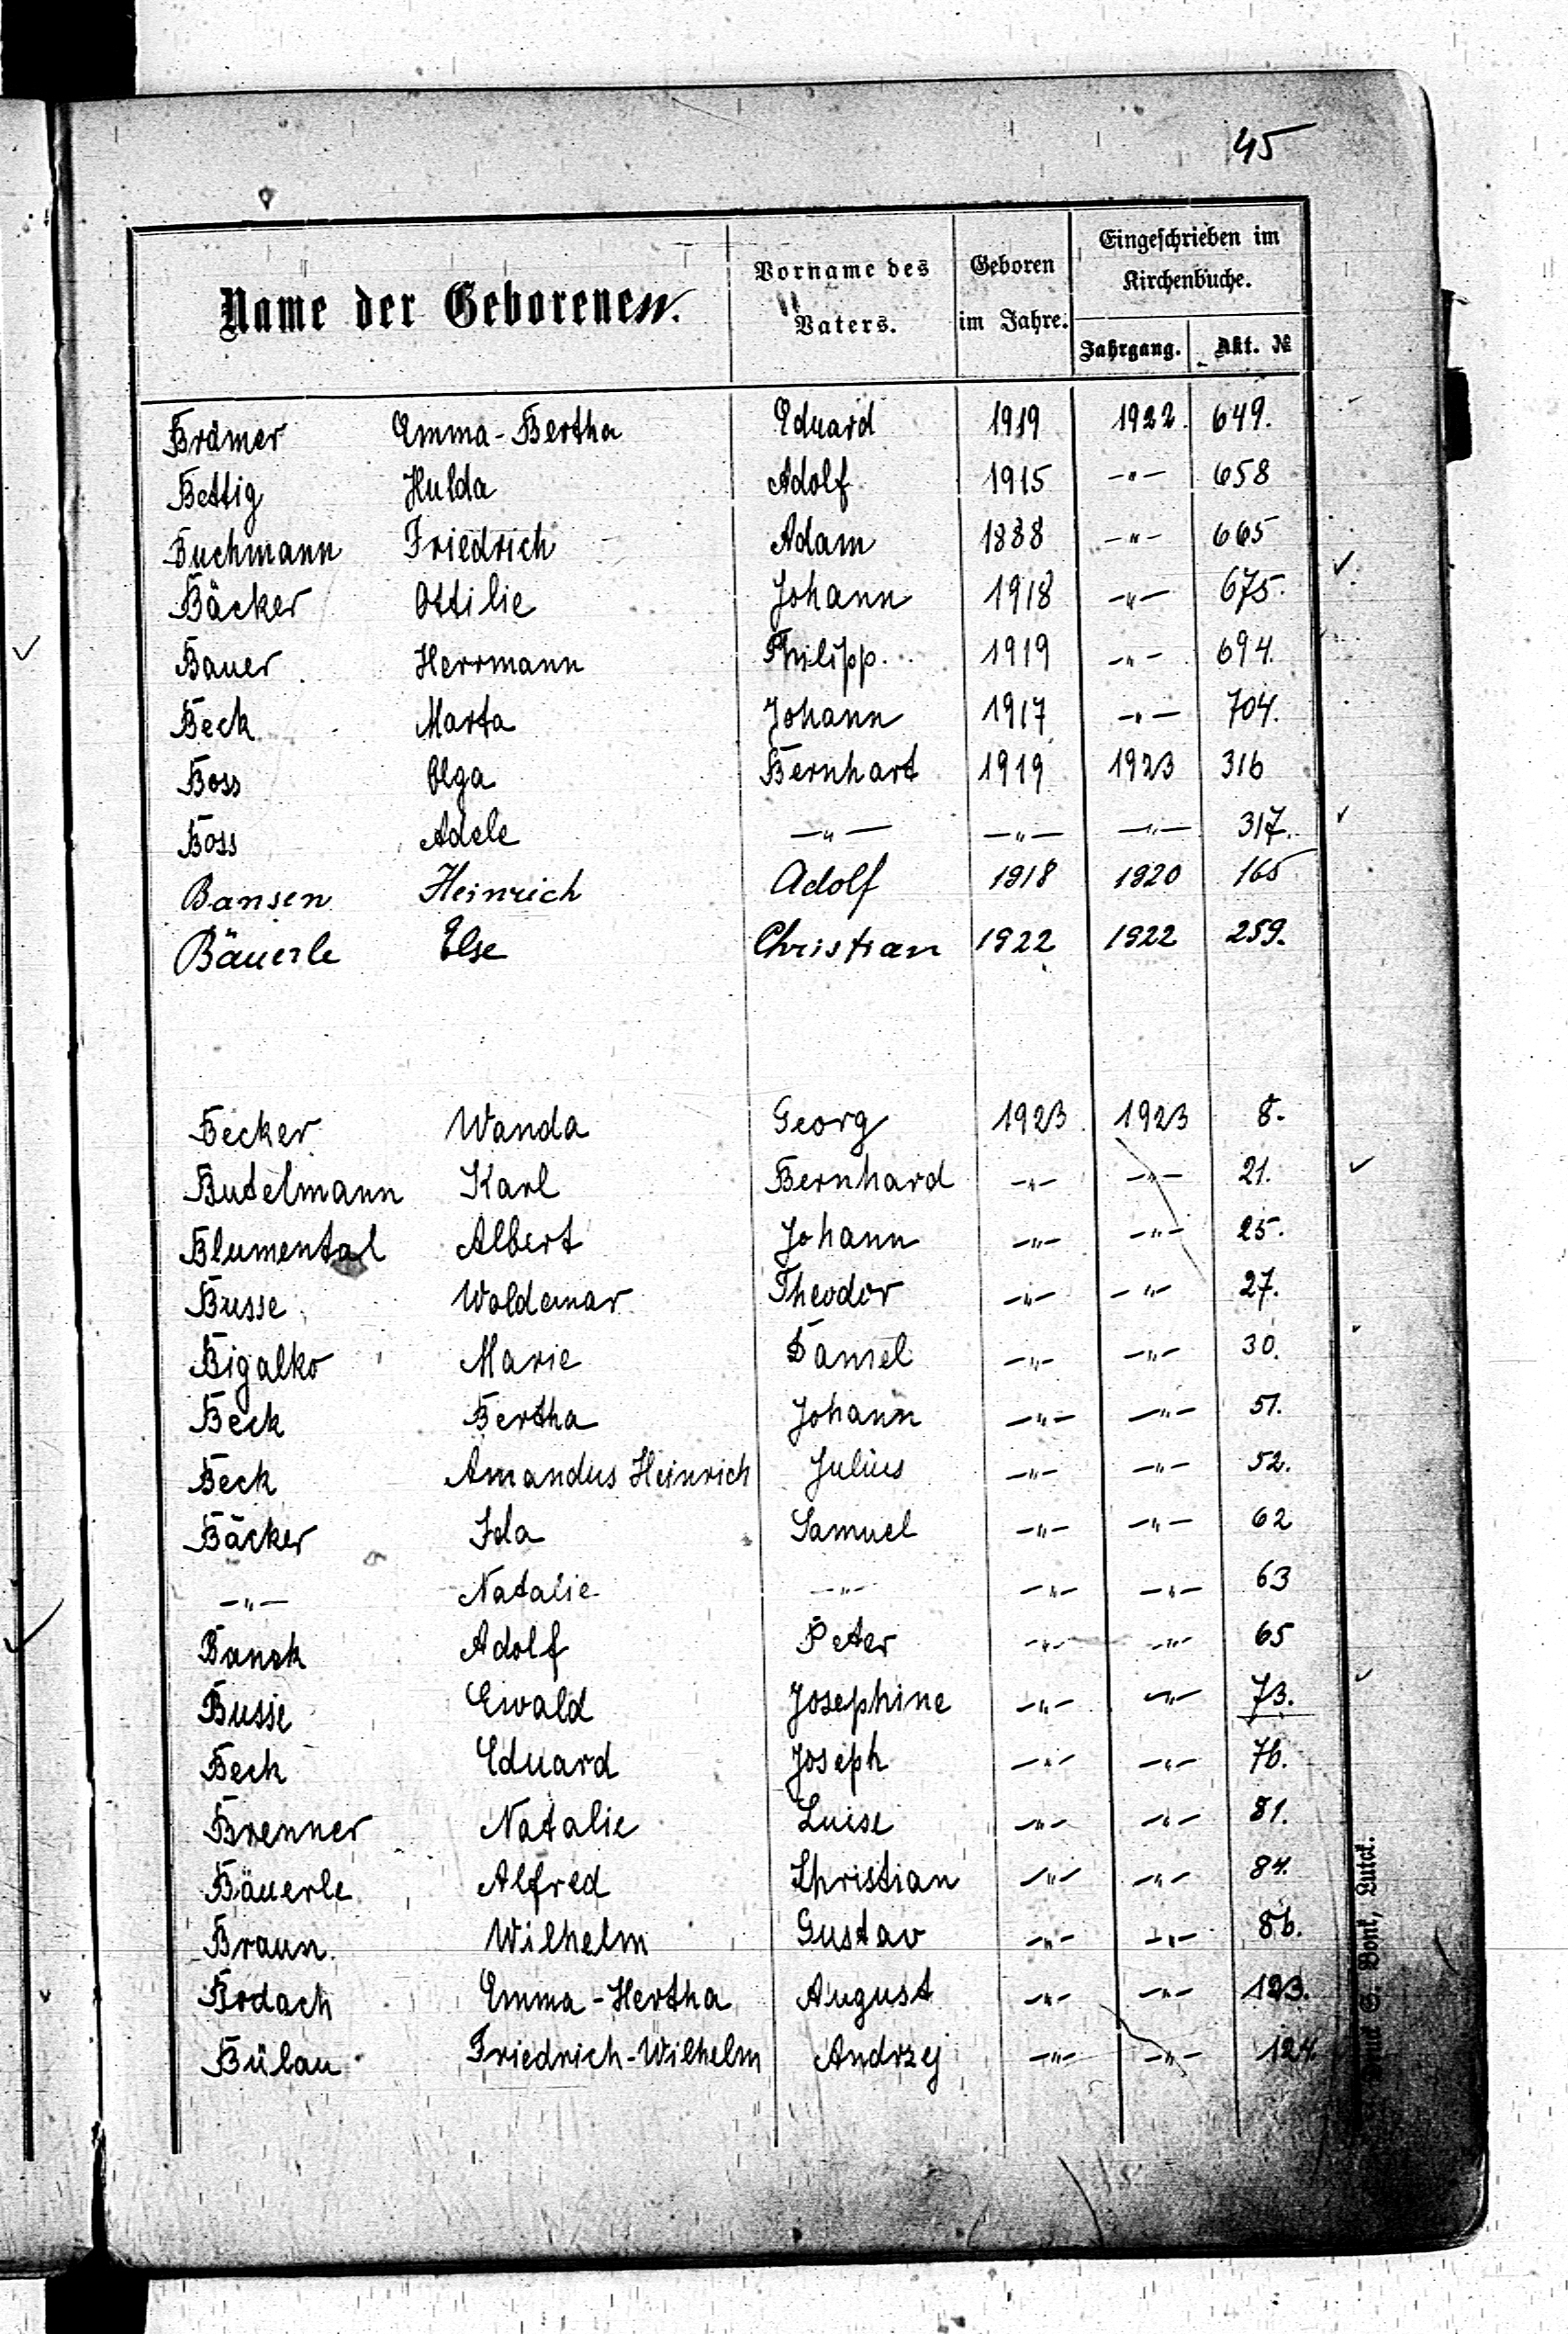 45
Name der Geborenen.
Vorname des Vaters.
Geboren im Jahre.
Eingeschrieben im Kirchenbuche.
Jahrgang. Akt. №
Brämer Emma-Bertha Eduard 1919 1922. 649.
Bettig Hulda Adolf 1915 -"- 658
Buchmann Friedrich Adam 1888 -"- 665
Bäcker Ottilie Johann 1918 -"- 675.
Bauer Herrmann Philipp. 1919 -"- 694.
Beck Marta Johann 1917 -"- 704.
Boss Olga Bernhart 1919 1923 316
Boss Adele -"- -"- -"- 317.
Bansen Heinrich Adolf 1918 1920 165
Bäuerle Else Christian 1922 1922 259.
Becker Wanda Georg 1923 1923 8.
Butelmann Karl Bernhard -"- -"- 21.
Blumental Albert Johann -"- -"- 25.
Busse Woldemar Theodor -"- -"- 27.
Bigalko Marie Daniel -"- -"- 30.
Beck Bertha Johann -"- -"- 51.
Beck Amandus Heinrich Julius -"- -"- 52.
Bäcker Ida Samuel -"- -"- 62
-"- Natalie -"- -"- -"- 63
Adolf Peter -"- -"- 65
Busse Ewald Josephine -"- -"- 73.
Beck Eduard Joseph -"- -"- 76.
Brenner Natalie Luise -"- -"- 81.
Bäuerle Alfred Christian -"- -"- 84.
Braun. Wilhelm Gustav -"- -"- 86.
Brodach Emma-Hertha August -"- -"- 123.
Bülau Friedrich-Wilhelm Andrzej -"- -"- 124.
Lutsk.